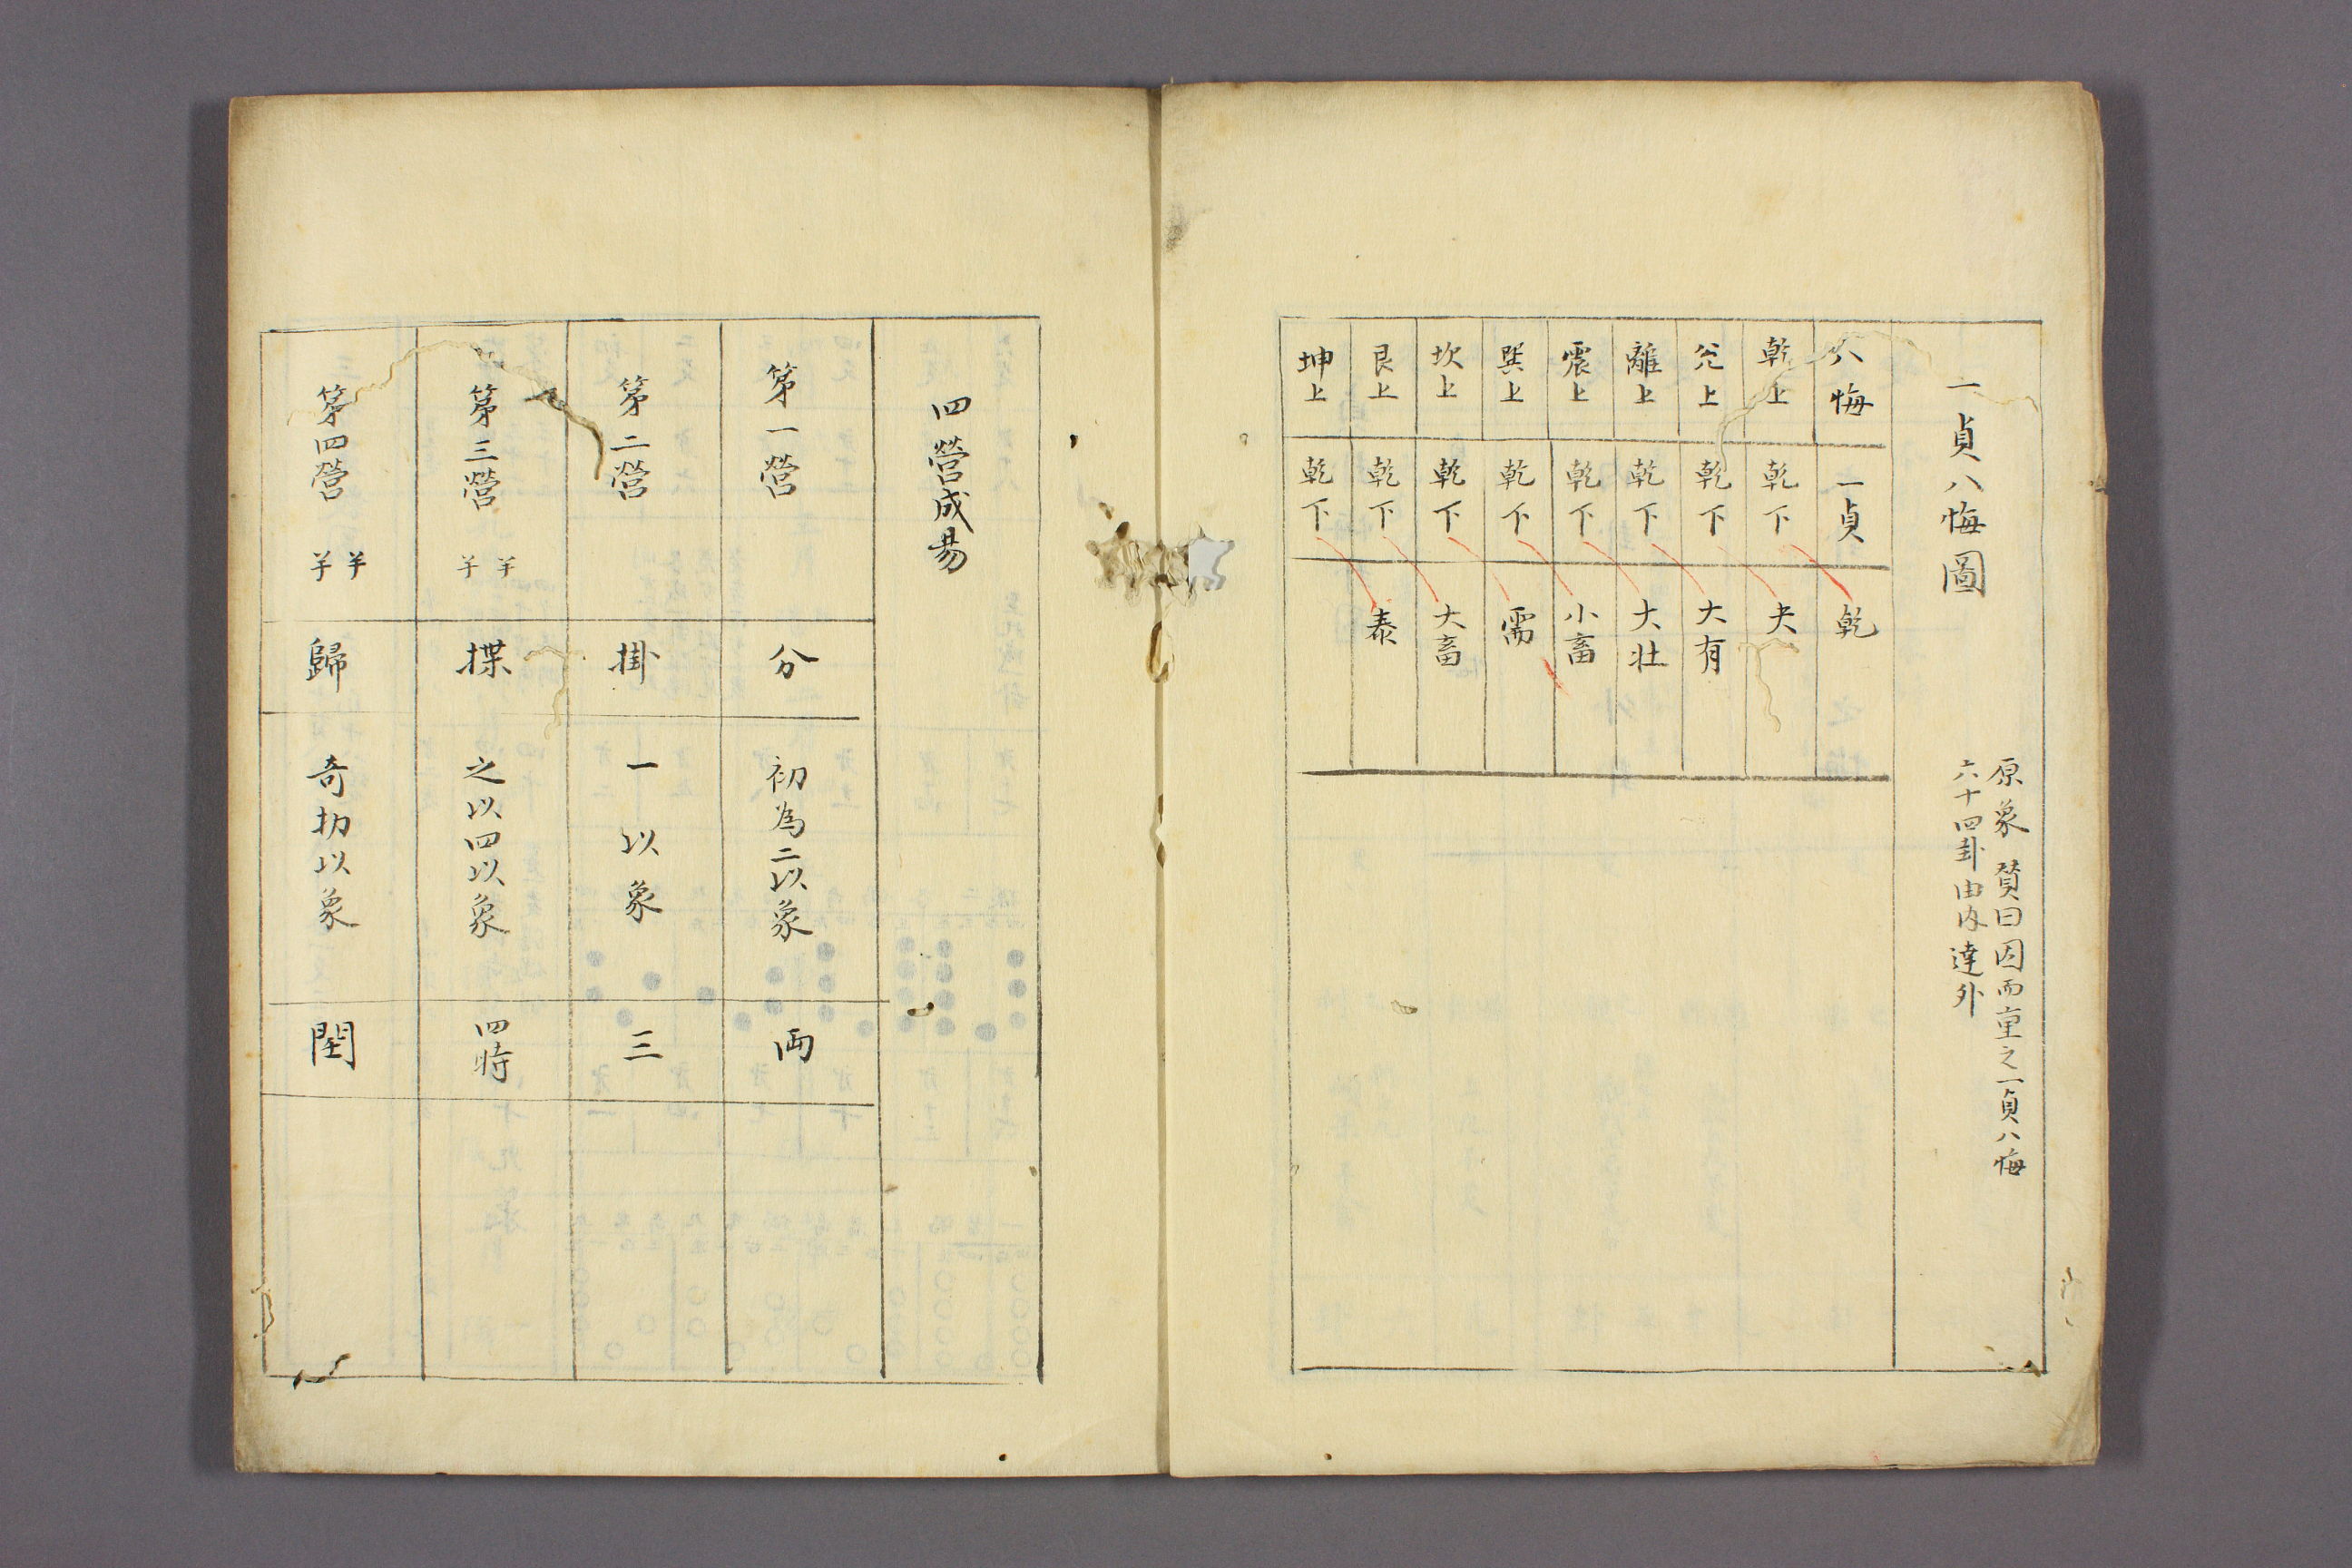 一貞八悔圖
原象賛曰因而重之一貞八悔
六十四卦由内達外
八悔 一貞 乾
乾上 乾下 夬
兊上 乾下 大有
離上 乾下 大壮
震上 乾下 小畜
巽上 乾下 需
坎上 乾下 大畜
艮上 乾下 泰
坤上 乾下
四營成易
第一營 分 初為二以象 両
第二營 掛 一以象 三
第三營 半半 揲 之以四以象 四時
第四營 半半 歸 奇扐以象 閏